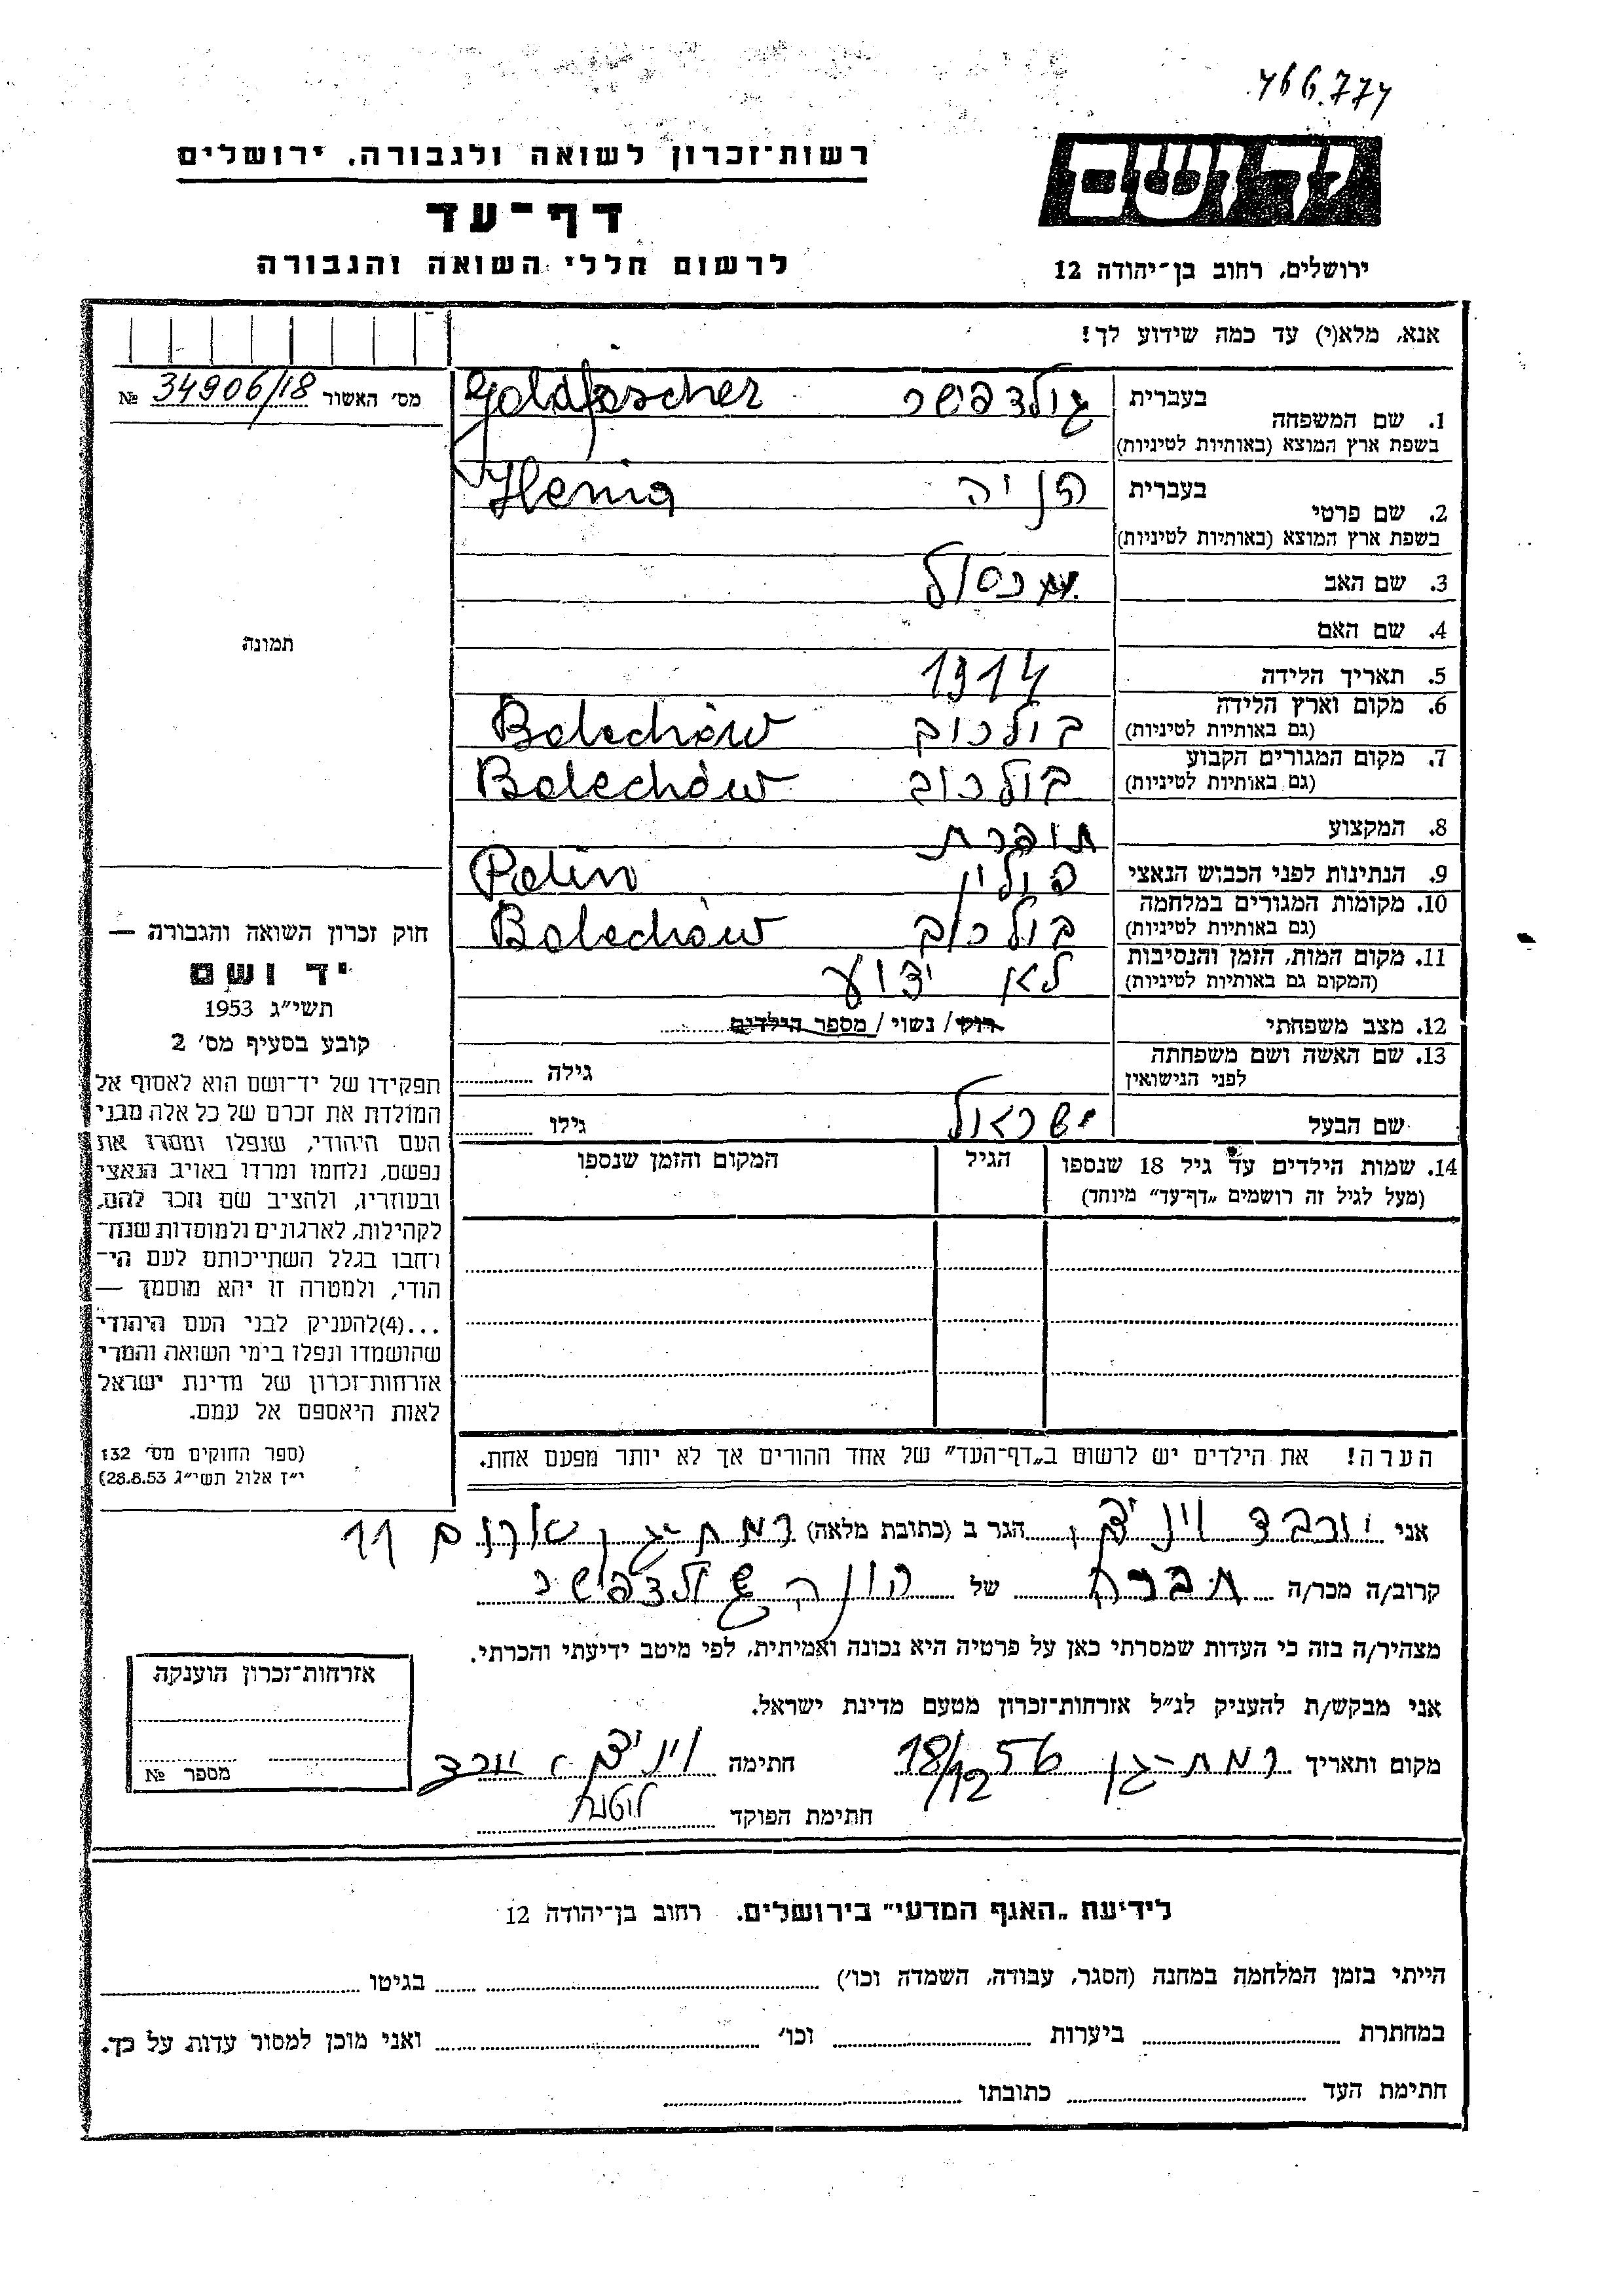 466.774
רשות־זכרון לשואה ולגבורה. ירושלים
יד ושם
דף־עד
לרשום חללי השואה והגבורה
ירושלים, רחוב בן־יהודה 12
אנא, מלא(י) עד כמה שידוע לך!
מס׳ האשור 34906/18 №
1. שם המשפחה
בעברית גולדפשר Goldfascher
בשפת ארץ המוצא (באותיות לטיניות)
2. שם פרטי
בעברית הניה Henia
בשפת ארץ המוצא (באותיות לטיניות)
3. שם האב
4. שם האם
תמונה
5. תאריך הלידה 1914
6. מקום וארץ הלידה בולכוב Bolechów
(גם באותיות לטיניות)
7. מקום המגורים הקבוע בולכוב Bolechów
(גם באותיות לטיניות)
8. המקצוע תופרת
9. הנתינות לפני הכבוש הנאצי פולין Polin
10. מקומות המגורים במלחמה בולכוב Bolechów
(גם באותיות לטיניות)
11. מקום המות, הזמן והנסיבות לא ידוע
(המקום גם באותיות לטיניות)
12. מצב משפחתי רוק/ נשוי/ מספר הילדים
13. שם האשה ושם משפחתה
לפני הנישואין
גילה
שם הבעל ישראל גילו
14. שמות הילדים עד גיל 18 שנספו
(מעל לגיל זה רושמים „דף־עד״ מיוחד)
הגיל
המקום והזמן שנספו
חוק זכרון השואה והגבורה —
יד ושם
תשי״ג 1953
קובע בסעיף מס׳ 2
תפקידו של יד־ושם הוא לאסוף אל
המולדת את זכרם של כל אלה מבני
העם היהודי, שנפלו ומסרו את
נפשם, נלחמו ומרדו באויב הנאצי
ובעוזריו, ולהציב שם וזכר להם,
לקהילות, לארגונים ולמוסדות שנח־
רחבו בגלל השתייכותם לעם הי־
הודי, ולמטרה זו יהא מוסמך —
...(4)להעניק לבני העם היהודי
שהושמדו ונפלו בימי השואה והמרי
אזרחות־זכרון של מדינת ישראל
לאות היאספם אל עמם.
(ספר החוקים מס׳ 132
י״ז אלול תשי״ג 28.8.53)
הערה! את הילדים יש לרשום ב„דף־העד״ של אחד ההורים אך לא יותר מפעם אחת.
אני הגר ב (כתובת מלאה) רמת־גן 11
קרוב/ה מכר/ה חברה של גולדפישר
מצהיר/ה בזה כי העדות שמסרתי כאן על פרטיה היא נכונה ואמיתית, לפי מיטב ידיעתי והכרתי.
אני מבקש/ת להעניק לנ״ל אזרחות־זכרון מטעם מדינת ישראל.
מקום ותאריך רמת־גן 18/12 56 חתימה
חתימת הפוקד
אזרחות־זכרון הוענקה
מספר №
לידיעת „האגף המדעי״ בירושלים. רחוב בן־יהודה 12
הייתי בזמן המלחמה במחנה (הסגר, עבודה, השמדה וכו׳) בגיטו
במחתרת ביערות וכו׳ ואני מוכן למסור עדות על כך.
חתימת העד כתובתו